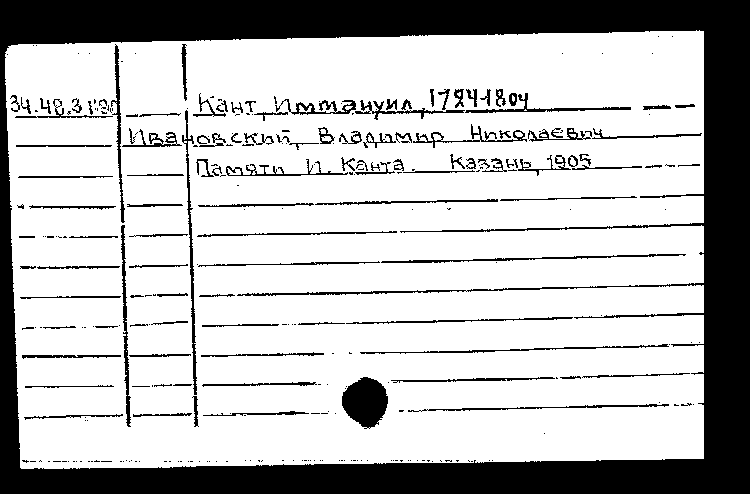 34.48.3 Кант, Иммануил, 1724-1804
Ивановский, Владимир Николаевич
Памяти И. Канта. Казань, 1905